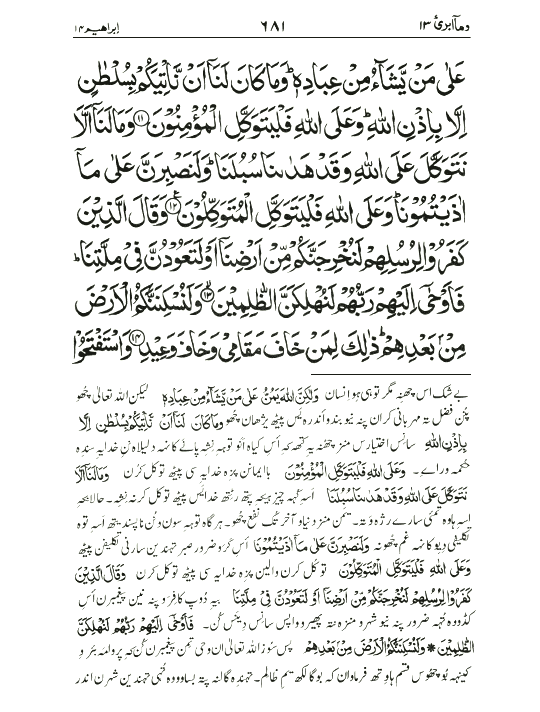 ابراهیم ۱۴ ۶۸۱ وماآبرئ ۱۳
عَلٰی مَنْ یَّشَآءُ مِنْ عِبَادِهٖ ؕ وَمَا کَانَ لَنَاۤ اَنْ نَّاْتِیَکُمْ بِسُلْطٰنٍ
اِلَّا بِاِذْنِ اللهِ ؕ وَعَلَی اللهِ فَلْیَتَوَکَّلِ الْمُؤْمِنُوْنَ ﴿۱۱﴾ وَمَا لَنَاۤ اَلَّا
نَتَوَکَّلَ عَلَی اللهِ وَقَدْ هَدٰىنَا سُبُلَنَا ؕ وَلَنَصْبِرَنَّ عَلٰی مَاۤ
اٰذَیْتُمُوْنَا ؕ وَعَلَی اللهِ فَلْیَتَوَکَّلِ الْمُتَوَکِّلُوْنَ ﴿۱۲﴾ وَقَالَ الَّذِیْنَ
کَفَرُوْا لِرُسُلِهِمْ لَنُخْرِجَنَّکُمْ مِّنْ اَرْضِنَاۤ اَوْ لَتَعُوْدُنَّ فِیْ مِلَّتِنَا ؕ
فَاَوْحٰۤی اِلَیْهِمْ رَبُّهُمْ لَنُهْلِکَنَّ الظّٰلِمِیْنَ ﴿۱۳﴾ وَلَنُسْکِنَنَّکُمُ الْاَرْضَ
مِنْۢ بَعْدِهِمْ ؕ ذٰلِکَ لِمَنْ خَافَ مَقَامِیْ وَخَافَ وَعِیْدِ ﴿۱۴﴾ وَاسْتَفْتَحُوْا
بے شک اس چھنہٕ مگر تو ہی ہو انسان وَلٰکِنَّ اللهَ یَمُنُّ عَلٰی مَنْ یَّشَآءُ مِنْ عِبَادِهٖ لیکن اللہ تعالیٰ چھُو
پنُن فضل تہ مہربانی کران پنہ نیو بندو اندرہ یَس پیٹھ یژھان چھُو وَمَا کَانَ لَنَاۤ اَنْ نَّاْتِیَکُمْ بِسُلْطٰنٍ اِلَّا
بِاِذْنِ اللهِ سانِس اختیارس منز چھنہ یہ کتھ کہ اَسِ کیاہ اَنو توہہ نِشہ پانے کانہہ دلیلاہ بن خدایہ سندہ
حکمہ ورائے۔ وَعَلَی اللهِ فَلْیَتَوَکَّلِ الْمُؤْمِنُوْنَ باایمانن پزہ خدایہ سی پیٹھ توکل کرن وَمَا لَنَاۤ اَلَّا
نَتَوَکَّلَ عَلَی اللهِ وَقَدْ هَدٰىنَا سُبُلَنَا اَسہِ کہہ چیز پیچہ پتھ رَٹتھ خدایَس پیٹھ توکل کرنہ نِشہ۔ حالانکہ
اَسہِ ہاوہ تَمیٔ سارے رژہ وَتہ۔ یَمن منز دنیا و آخرتُک نفع چھُو۔ ہرگاہ توہہ سون دنُن ناپسند یتھ اَسہِ توہ
تکلیفی دیو کانہہ غم چھُونہ وَلَنَصْبِرَنَّ عَلٰی مَاۤ اٰذَیْتُمُوْنَا اَسِ کرو ضرور صبر تہندین سارنی تکلیفن پیٹھ
وَعَلَی اللهِ فَلْیَتَوَکَّلِ الْمُتَوَکِّلُوْنَ توکل کرن والین پزہ خدایہ سی پیٹھ توکل کرن وَقَالَ الَّذِیْنَ
کَفَرُوْا لِرُسُلِهِمْ لَنُخْرِجَنَّکُمْ مِّنْ اَرْضِنَاۤ اَوْ لَتَعُوْدُنَّ فِیْ مِلَّتِنَا یہ دُوپ کافرو پنہ نین پیغمبرن اَسِ
کڈووہ تُہہ ضرور پنہ نیو شہرو منزہ نتہ پھیرو واپس سانِس دینَس کُن۔ فَاَوْحٰۤی اِلَیْهِمْ رَبُّهُمْ لَنُهْلِکَنَّ
الظّٰلِمِیْنَ * وَلَنُسْکِنَنَّکُمُ الْاَرْضَ مِنْۢ بَعْدِهِمْ پس سوز اللہ تعالیٰ ان وحی تمن پیغمبرن کُن کہ پروامنہ برو
کینہہ یو چھوس قسم ہاوتھ فرماوان کہ بو گالکھ یم ظالم۔ تہندہ گالنہ پتہ بساووہ تُہی تہندین شہرن اندر